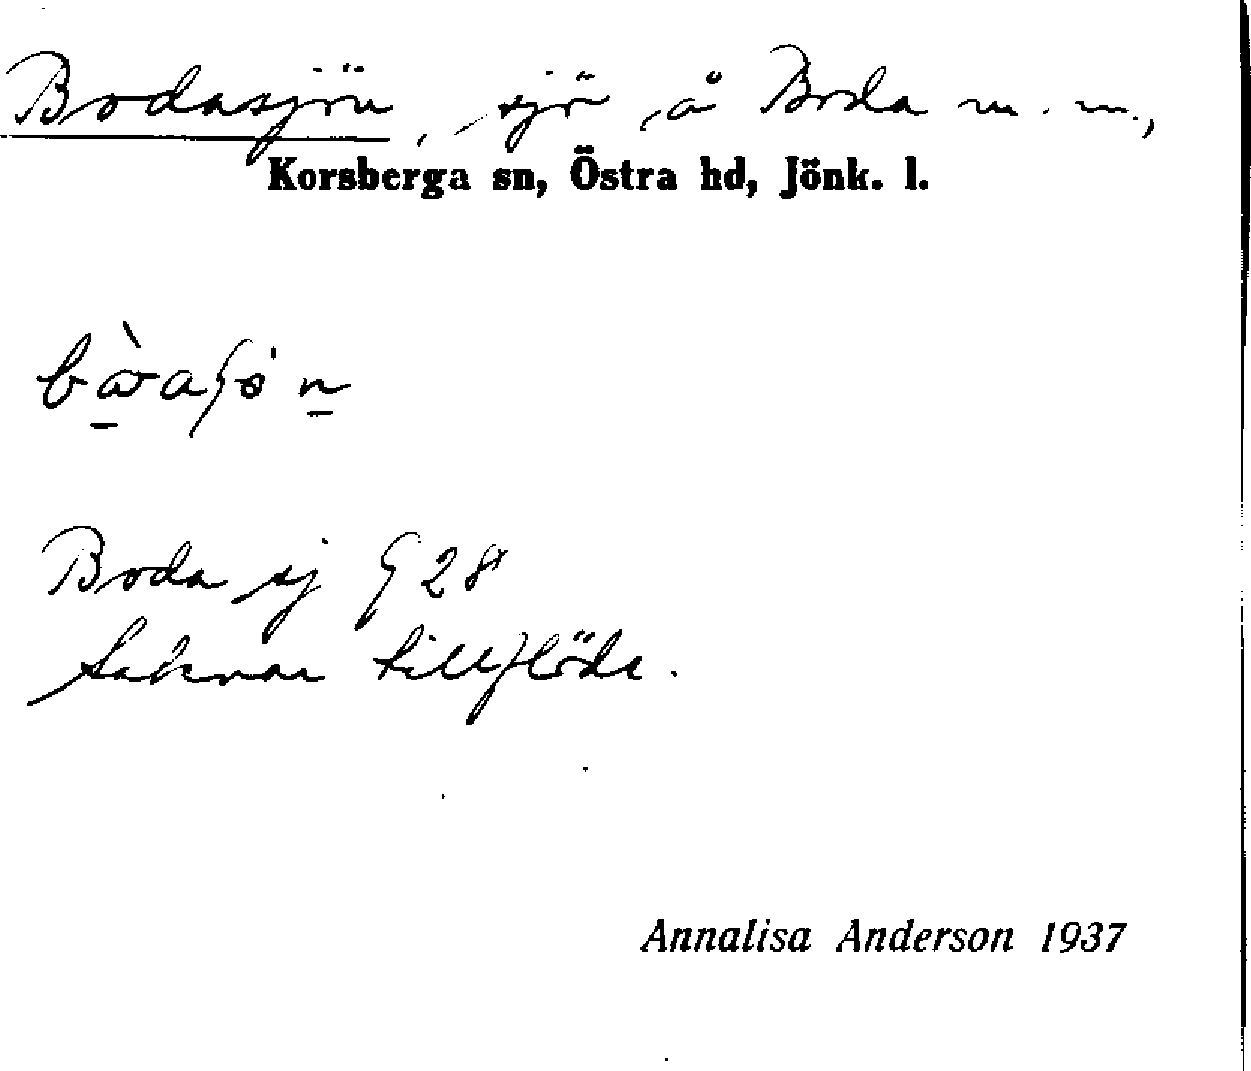 Bodasjön, sjö, å Boda m. m.,
Korsberga sn, Östra hd, Jönk. l.
Boda sj G 28
Saknar tillflöde.
Annalisa Anderson 1937